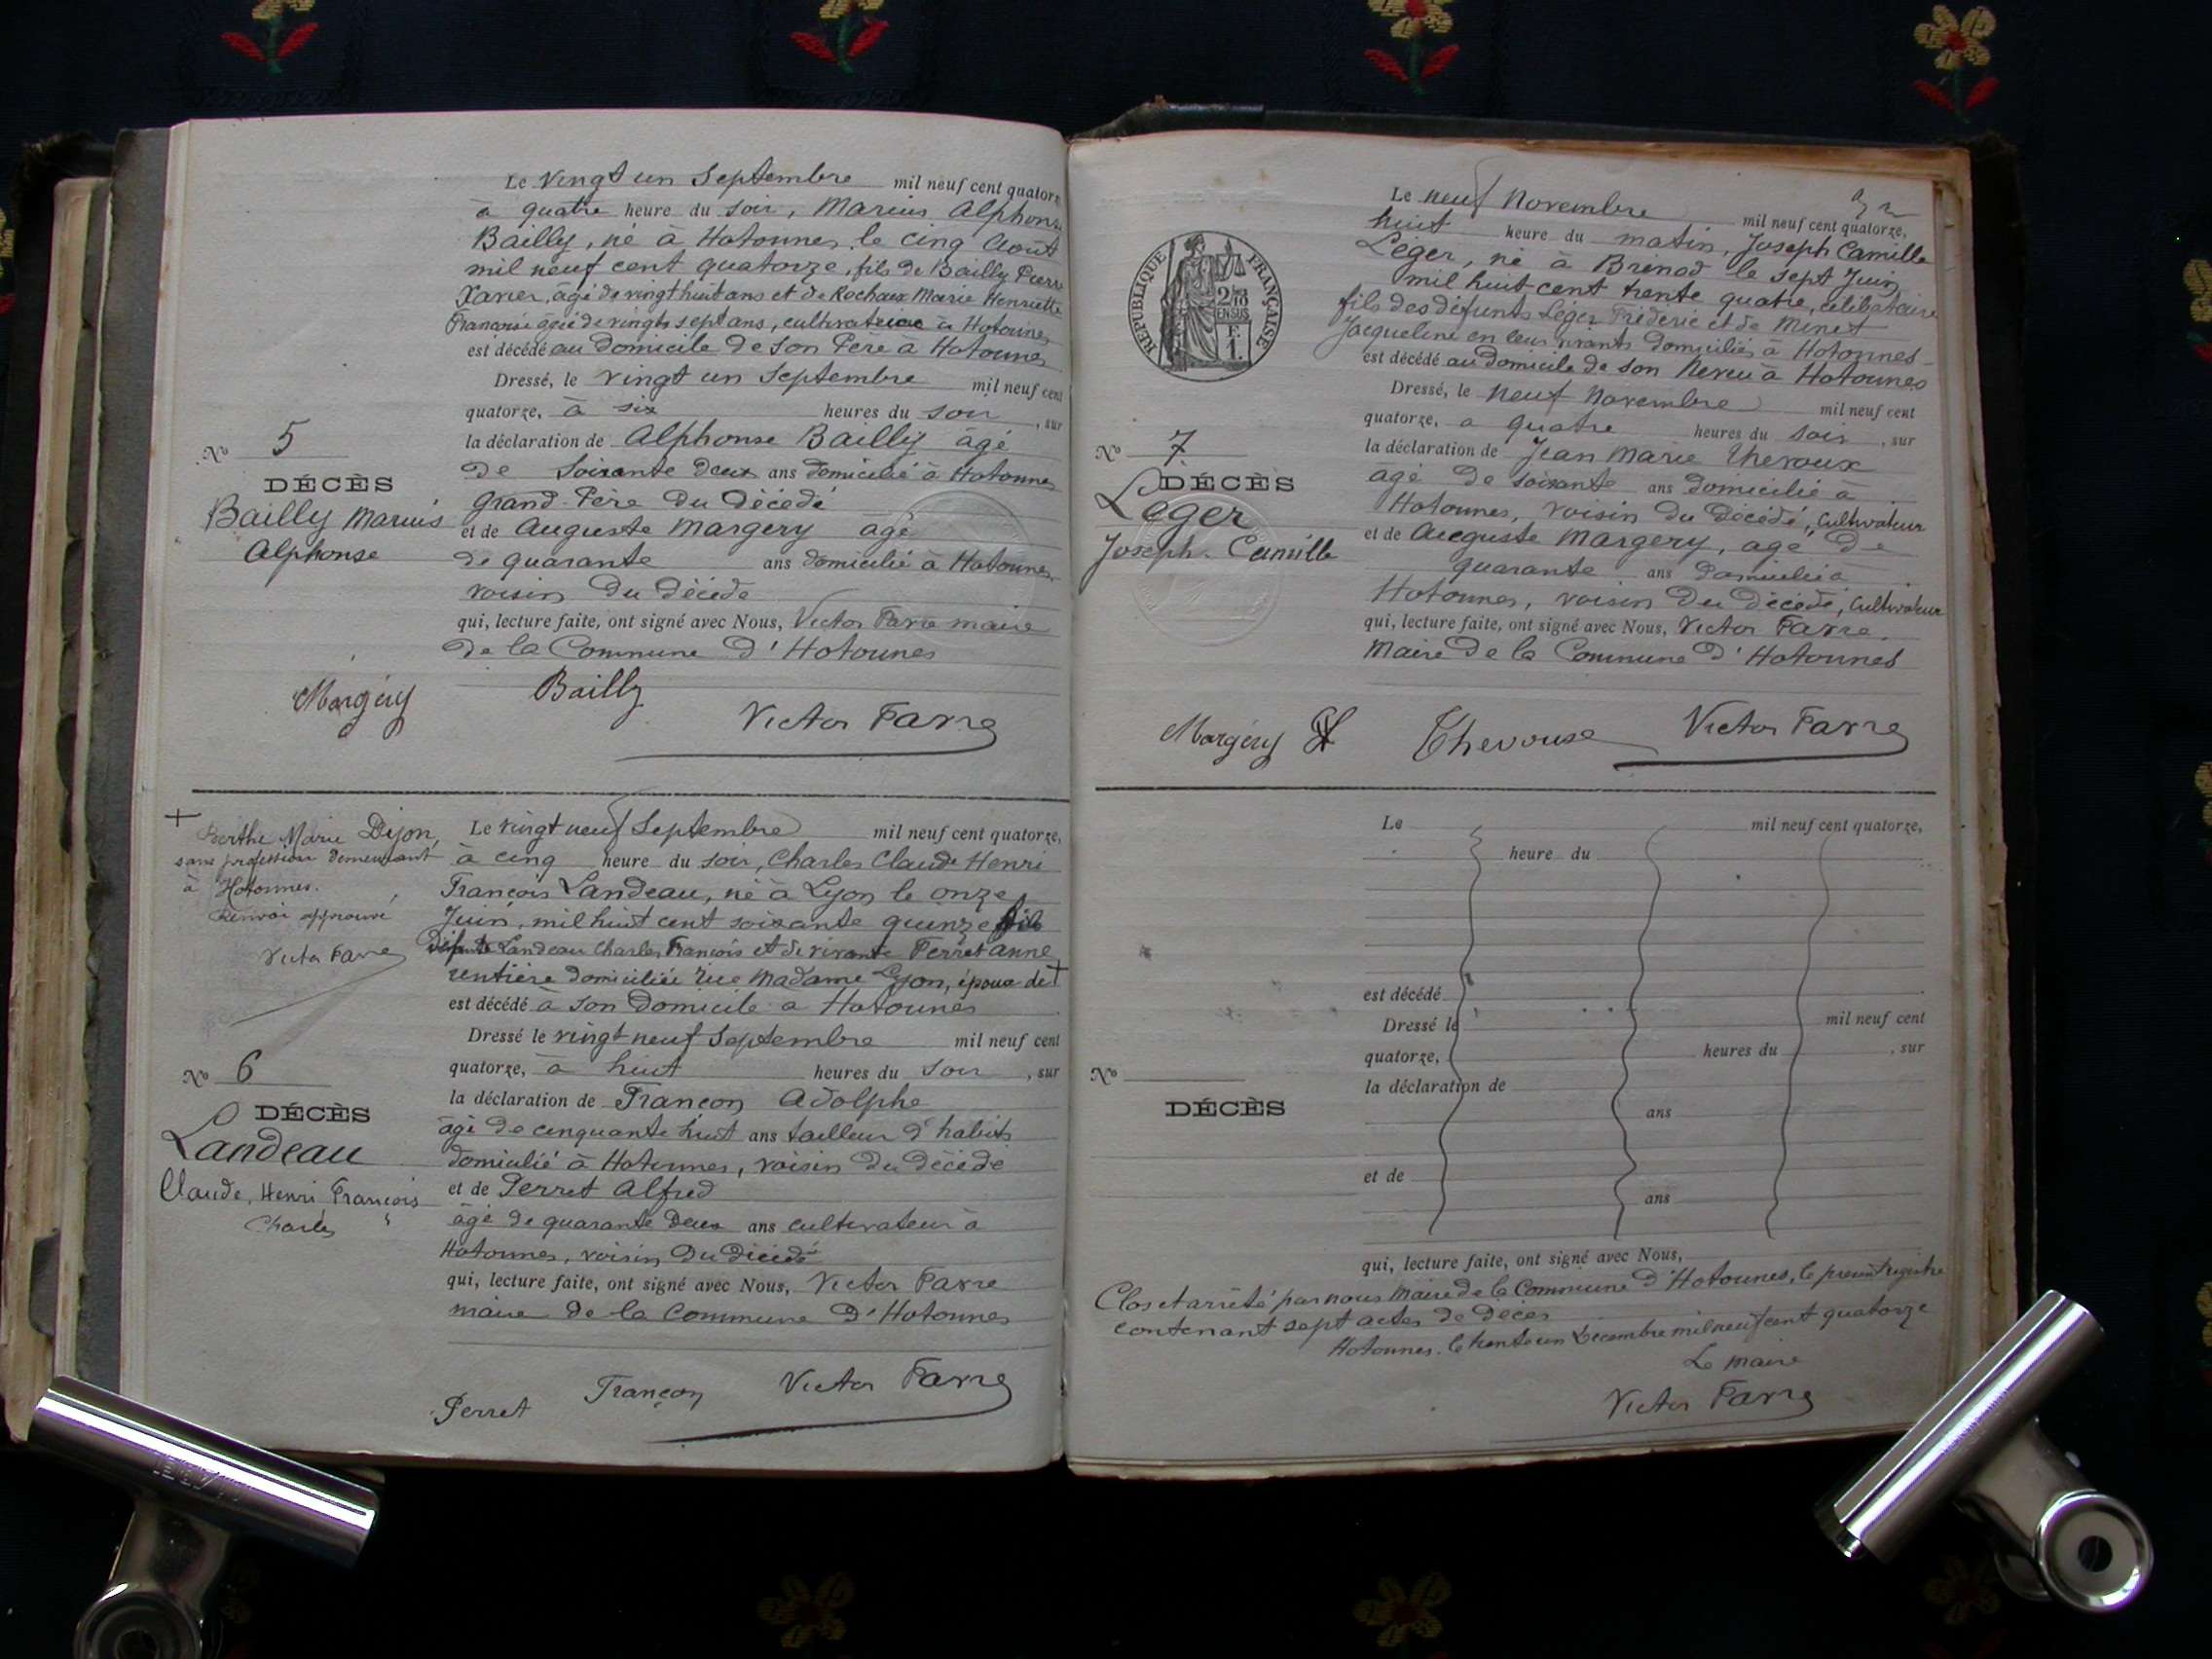 Le vingt un Septembre mil neuf cent quatorz
à quatre heure du soir, Marius Alphonse
Bailly, né à Hotonnes, le cinq Août
mil neuf cent quatorze, fils de Bailly Pierre
Xavier, âgé de vingt huit ans et de Rochaix Marie Henriette
Francoise âgée de vingt sept ans, cultivateurs à Hotonnes
est décédé au domicile de son Père à Hotonnes
Dressé, le vingt un Septembre mil neuf cent
quatorze, à six heures du soir, sur
la déclaration de Alphonse Bailly âgé
de soixante deux ans domicilié à Hotonnes
Grand-Père du Décédé
et de Auguste Margery agé
de quarante ans domicilié à Hotonnes,
voisin du décédé
qui, lecture faite, ont signé avec Nous, Victor Favre maire
de la Commune d'Hotonnes
Margery Bailly
Victor Favre
No 5
DÉCÈS
Bailly Marius
Alphonse
+
Berthe Marie Dijon,
sans profession demeurant
à Hotonnes.
Renvoi approuvé
Victor Favre
Le vingt neuf Septembre mil neuf cent quatorze,
à cinq heure du soir, Charles Claude Henri
François Landeau, né à Lyon le onze
Juin, mil huit cent soixante quinze fils
Landeau Charles François et de vivante Perret Anne
rentière domiciliée rue Madame Lyon, époux de +
est décédé à son domicile a Hotonnes
Dressé le vingt neuf Septembre mil neuf cent
quatorze, à huit heures du soir, sur
la déclaration de Françon Adolphe
âgé de cinquante huit ans tailleur d'habits
domicilié à Hotonnes, voisin du décédé
et de Perret Alfred
âgé de quarante deux ans cultivateur à
Hotonnes, voisin du décédé
qui, lecture faite, ont signé avec Nous, Victor Favre
maire de la Commune d'Hotonnes
Perret Françon Victor Favre
No 6
DÉCÈS
Landeau
Claude, Henri François
Charles
RÉPUBLIQUE FRANÇAISE
2/10
EN SUS
F.
1.
Le neuf Novembre mil neuf cent quatorze,
huit heure du matin, Joseph Camille
Léger, né à Brénod le sept Juin
mil huit cent trente quatre, célibataire
fils des défunts Léger Fréderic et de Minet
Jacqueline en leurs vivants domiciliés à Hotonnes
est décédé au domicile de son Neveu à Hotonnes
Dressé, le neuf Novembre mil neuf cent
quatorze, a quatre heures du soir, sur
la déclaration de Jean Marie Thevoux
âgé de soixante ans domicilié à
Hotonnes, voisin du décédé, Cultivateur
et de Auguste Margery, agé de
quarante ans domicilié à
Hotonnes, voisin du décédé, Cultivateur
qui, lecture faite, ont signé avec Nous, Victor Favre,
Maire de la Commune d'Hotonnes
Margery Thevoux Victor Favre
No 7
DÉCÈS
Léger
Joseph-Camille
Le mil neuf cent quatorze,
heure du
est décédé
Dressé le mil neuf cent
quatorze, heures du , sur
la déclaration de
ans
et de
ans
qui, lecture faite, ont signé avec Nous,
No
DÉCÈS
Clos et arrêté par nous Maire de la Commune d'Hotonnes, le présent registre
contenant sept actes de décès
Hotonnes, le trente un Décembre mil neuf cent quatorze
Le maire
Victor Favre